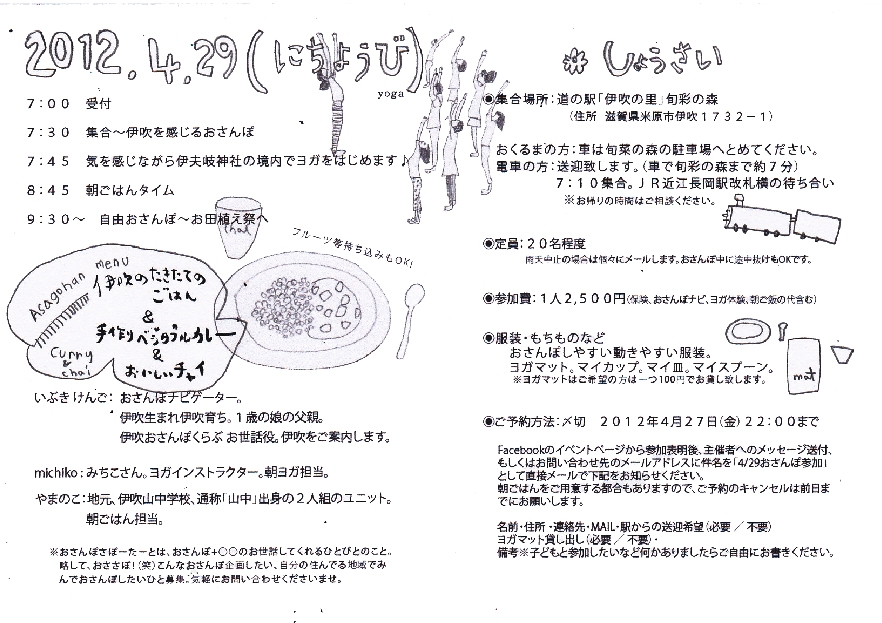 2012.4.29(にちようび)
yoga
7:00 受付
7:30 集合～伊吹を感じるおさんぽ
7:45 気を感じながら伊夫岐神社の境内でヨガをはじめます♪
8:45 朝ごはんタイム
9:30～ 自由おさんぽ～お田植え祭へ
chai
フルーツ等持ち込みもOK!
Asagohan menu
伊吹のたきたての
ごはん
&
手作りベジタブルカレー
&
おいしいチャイ
Curry
& chai
いぶきけんご: おさんぽナビゲーター。
伊吹生まれ伊吹育ち。1歳の娘の父親。
伊吹おさんぽくらぶ お世話役。伊吹をご案内します。
michiko:みちこさん。ヨガインストラクター。朝ヨガ担当。
やまのこ:地元、伊吹山中学校、通称「山中」出身の2人組のユニット。
朝ごはん担当。
※おさんぽさぽーたーとは、おさんぽ+○○のお世話してくれるひとびとのこと。
略して、おささぽ!(笑)こんなおさんぽ企画したい、自分の住んでる地域でみ
んでおさんぽしたいひと募集。気軽にお問い合わせくださいませ。
※しょうさい
◉集合場所:道の駅「伊吹の里」旬彩の森
(住所 滋賀県米原市伊吹1732-1)
おくるまの方:車は旬菜の森の駐車場へとめてください。
電車の方:送迎致します。(車で旬彩の森まで約7分)
7:10集合。JR近江長岡駅改札横の待ち合い
※お帰りの時間はご相談ください。
◉定員:20名程度
雨天中止の場合は個々にメールします。おさんぽ中に途中抜けもOKです。
◉参加費:1人2,500円(保険、おさんぽナビ、ヨガ体験、朝ご飯の代含む)
◉服装・もちものなど
おさんぽしやすい動きやすい服装。
ヨガマット。マイカップ。マイ皿。マイスプーン。
※ヨガマットはご希望の方は一つ100円でお貸し致します。
mat
◉ご予約方法:〆切 2012年4月27日(金)22:00まで
Facebookのイベントページから参加表明後、主催者へのメッセージ送付、
もしくはお問い合わせ先のメールアドレスに件名を「4/29おさんぽ参加」
として直接メールで下記をお知らせください。
朝ごはんをご用意する都合もありますので、ご予約のキャンセルは前日ま
でにお願いします。
名前・住所・連絡先・MAIL・駅からの送迎希望(必要/不要)
ヨガマット貸し出し(必要/不要)・
備考※子どもと参加したいなど何かありましたらご自由にお書きください。